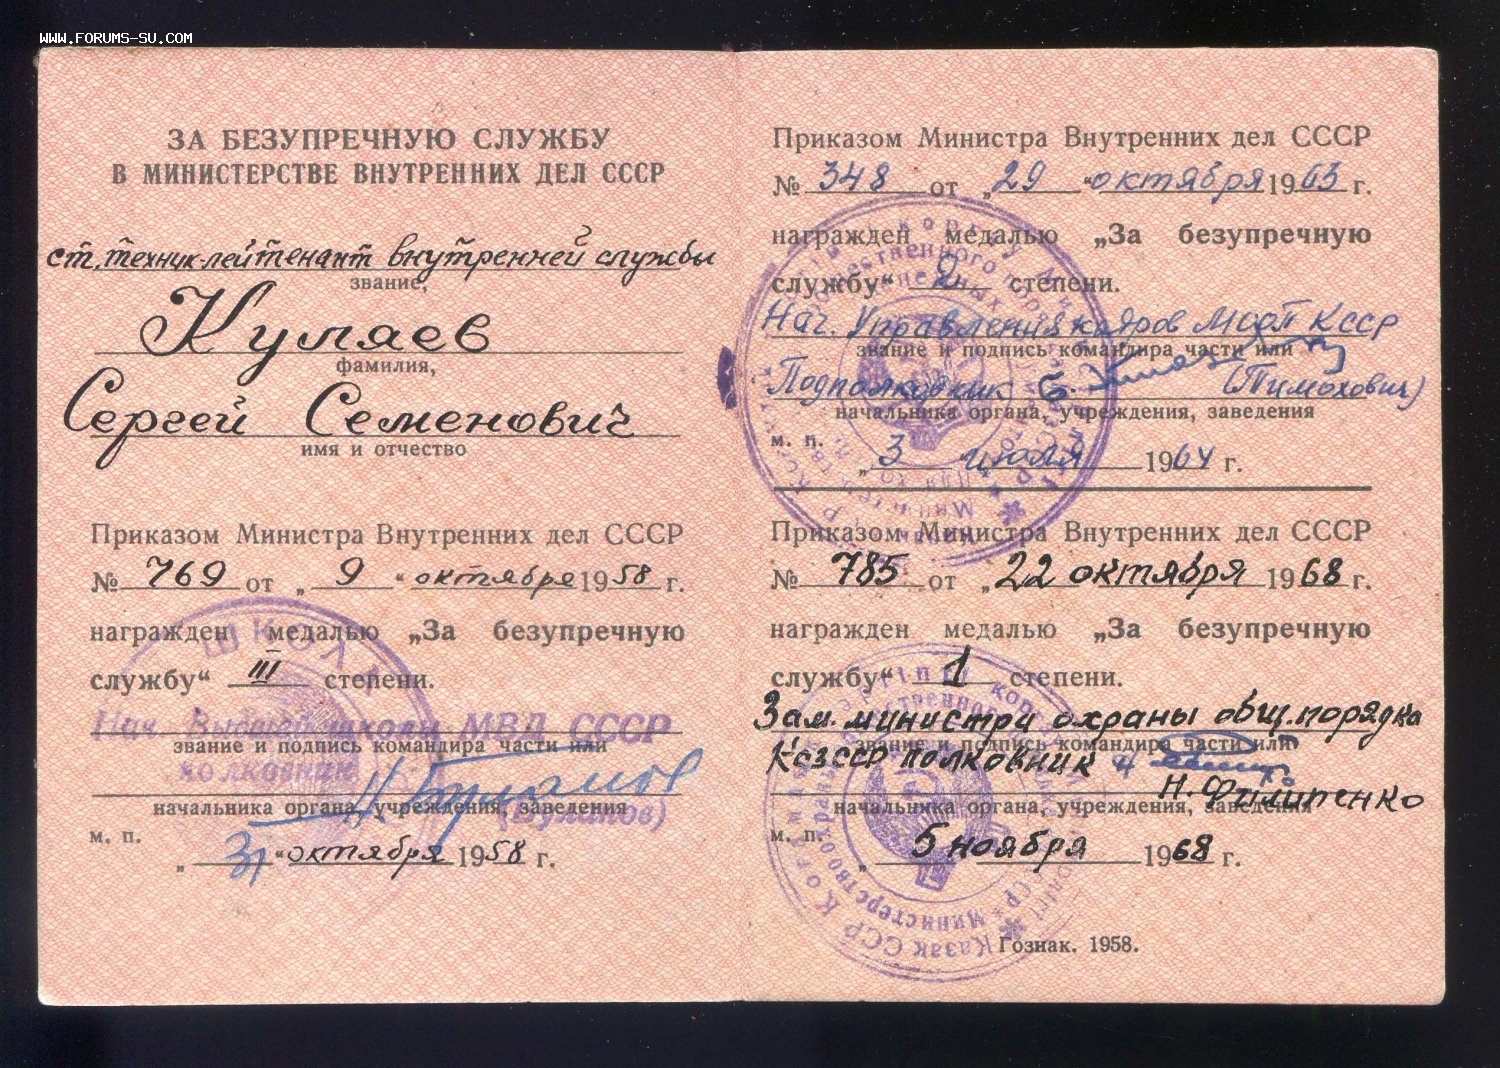 WWW.FORUMS-SU.COM
ЗА БЕЗУПРЕЧНУЮ СЛУЖБУ
В МИНИСТЕРСТВЕ ВНУТРЕННИХ ДЕЛ СССР
ст. техник-лейтенант внутренней службы
звание,
Куляев
фамилия,
Сергей Семенович
имя и отчество
Приказом Министра Внутренних дел СССР
№ 769 от „ 9 “ октября 1958 г.
награжден медалью „За безупречную
службу“ III степени.
Нач. Высшей школы МВД СССР
звание и подпись командира части или
полковник
начальника органа, учреждения, заведения
м. п.
„ 31 “ октября 1958 г.
Приказом Министра Внутренних дел СССР
№ 348 от „ 29 “ октября 1963 г.
награжден медалью „За безупречную
службу“ 2 степени.
Нач. Управления кадров МООП КССР
звание и подпись командира части или
Подполковник (Тимохович)
начальника органа, учреждения, заведения
м. п.
„ 3 “ июля 1964 г.
Приказом Министра Внутренних дел СССР
№ 785 от „ 22 октября 1968 г.
награжден медалью „За безупречную
службу“ 1 степени.
Зам. министра охраны общ. порядка
звание и подпись командира части или
КазССР полковник
Н. Филипенко
начальника органа, учреждения, заведения
м. п.
„ 5 ноября 1968 г.
Гознак. 1958.